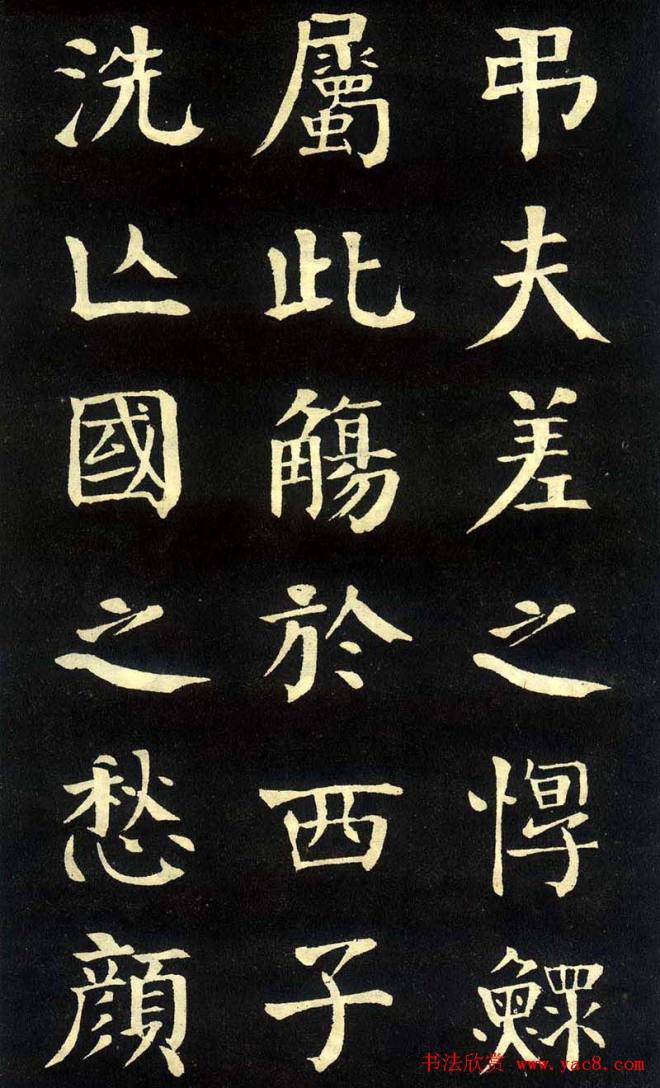 弔夫差之惸鰥
屬此觴於西子
洗亾國之愁顔
书法欣赏 www.yac8.com